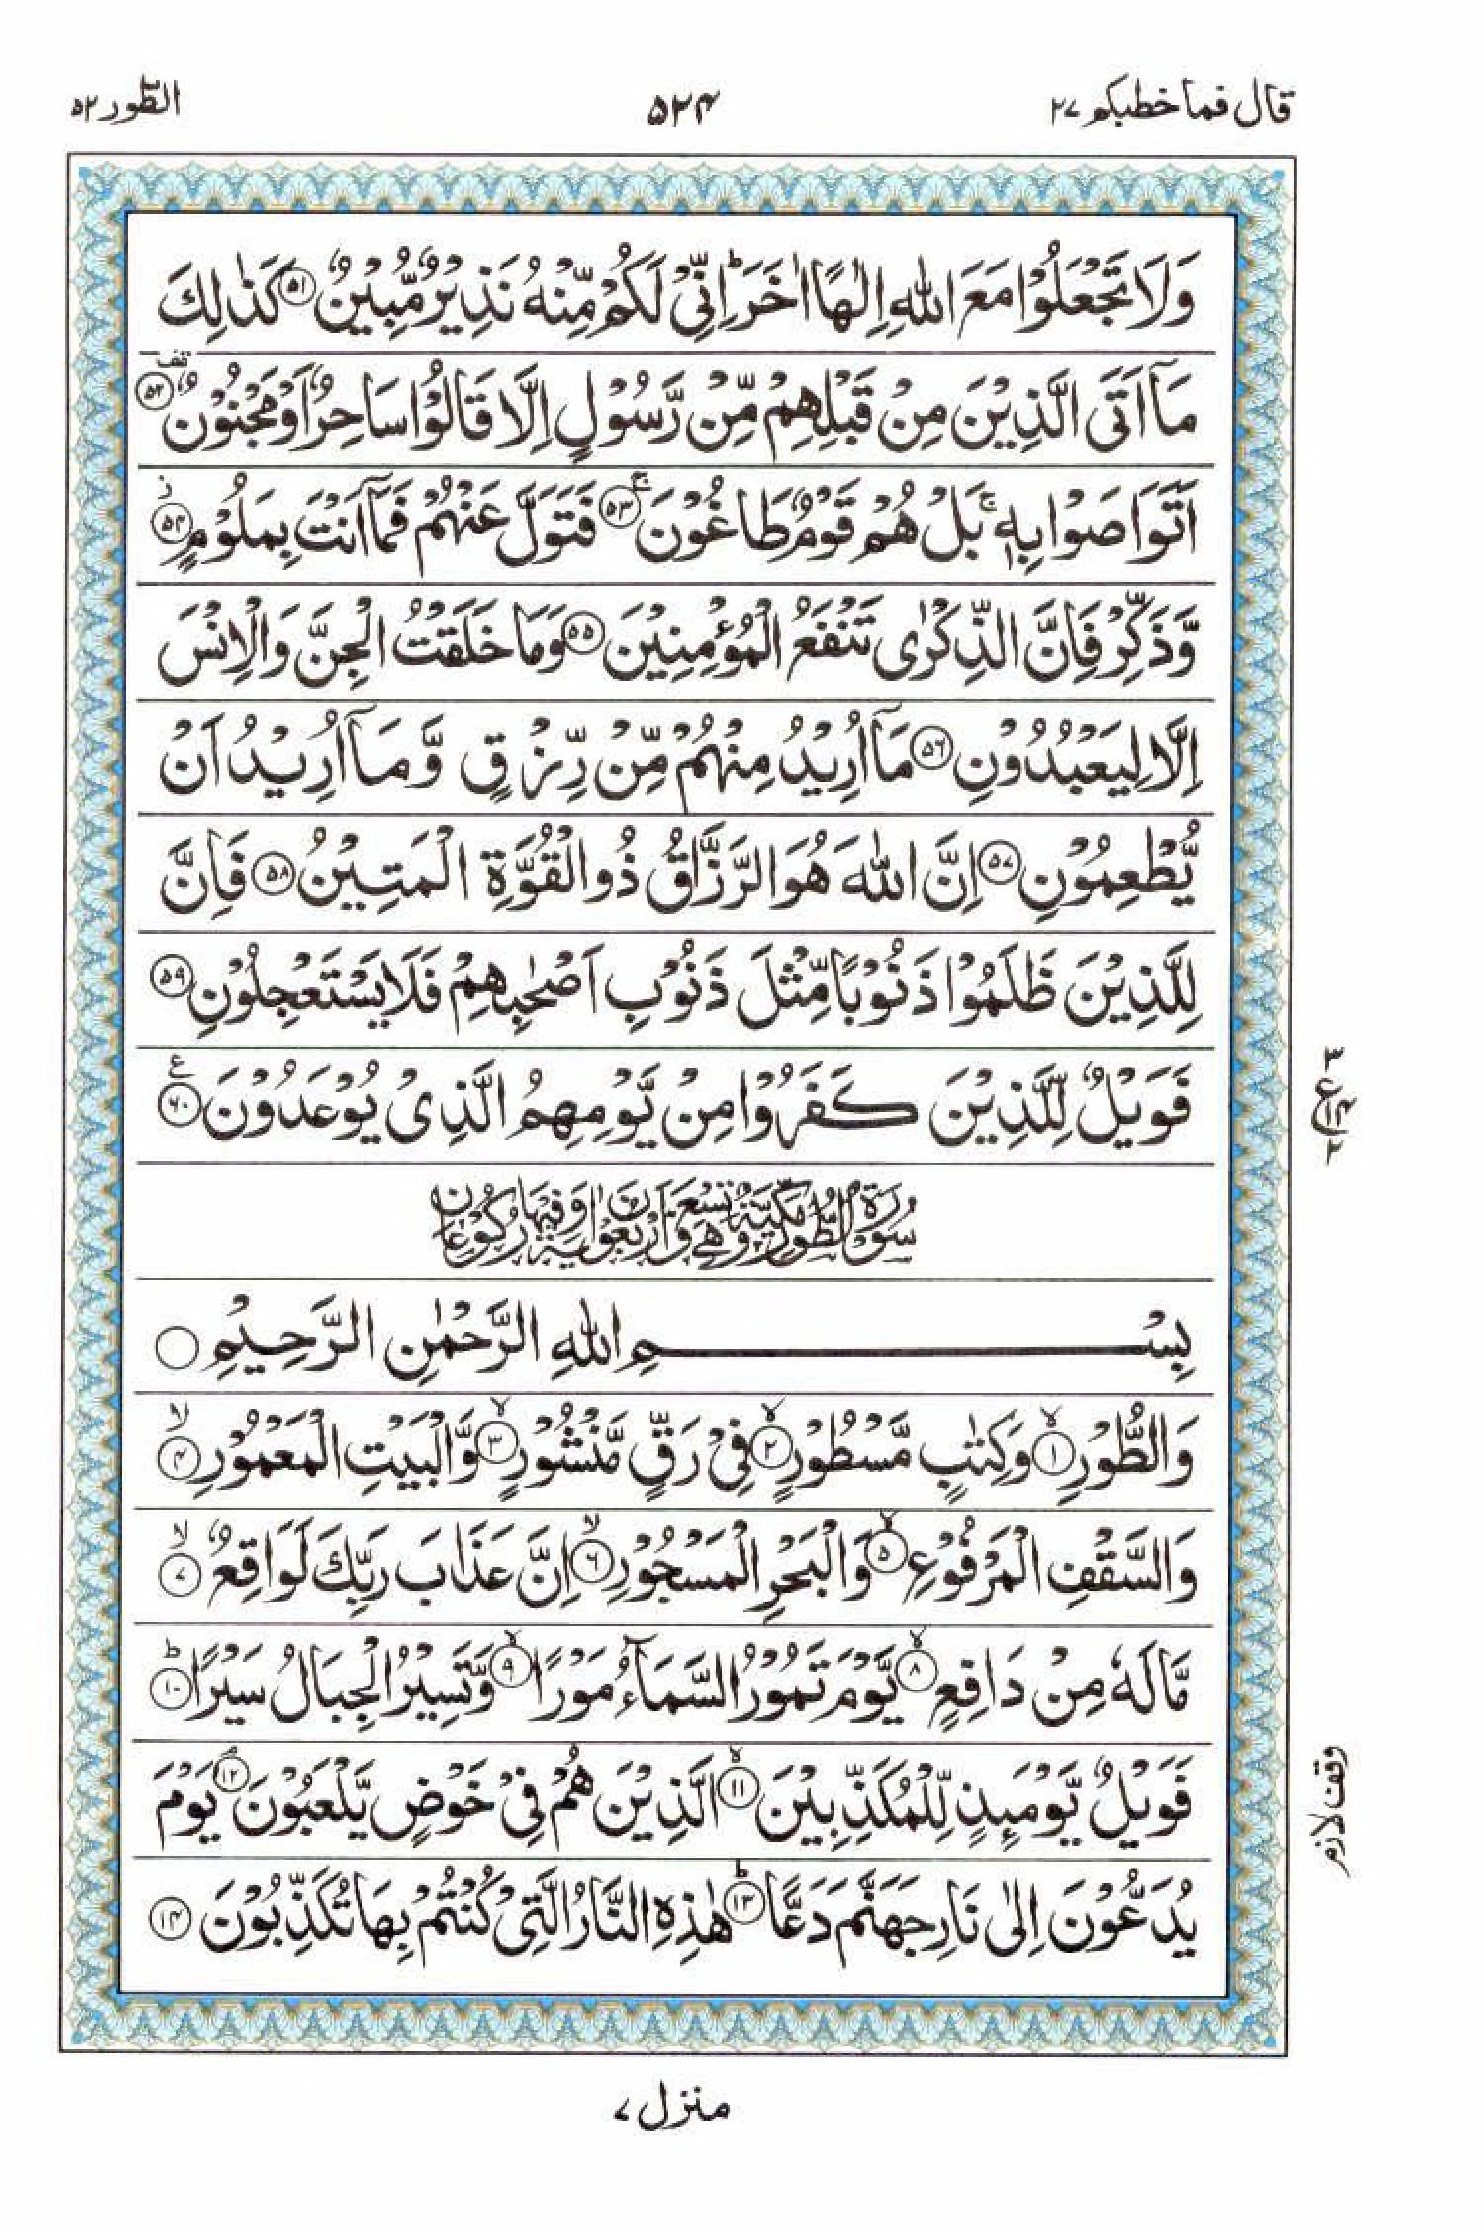 قال فماخطبكم ۲۷
۵۲۴
الطّور ۵۲
وَلَا تَجْعَلُوْا مَعَ اللّٰهِ اِلٰهًا اٰخَرَ ؕ اِنِّیْ لَكُمْ مِّنْهُ نَذِیْرٌ مُّبِیْنٌ ۝۵۱ كَذٰلِكَ
مَاۤ اَتَی الَّذِیْنَ مِنْ قَبْلِهِمْ مِّنْ رَّسُوْلٍ اِلَّا قَالُوْا سَاحِرٌ اَوْ مَجْنُوْنٌ ۝۵۲ قف
اَتَوَاصَوْا بِهٖ ۚ بَلْ هُمْ قَوْمٌ طَاغُوْنَ ۝۵۳ ج فَتَوَلَّ عَنْهُمْ فَمَاۤ اَنْتَ بِمَلُوْمٍ ۝۵۴ ز
وَّذَكِّرْ فَاِنَّ الذِّكْرٰی تَنْفَعُ الْمُؤْمِنِیْنَ ۝۵۵ وَمَا خَلَقْتُ الْجِنَّ وَالْاِنْسَ
اِلَّا لِیَعْبُدُوْنِ ۝۵۶ مَاۤ اُرِیْدُ مِنْهُمْ مِّنْ رِّزْقٍ وَّمَاۤ اُرِیْدُ اَنْ
یُّطْعِمُوْنِ ۝۵۷ اِنَّ اللّٰهَ هُوَ الرَّزَّاقُ ذُو الْقُوَّةِ الْمَتِیْنُ ۝۵۸ فَاِنَّ
لِلَّذِیْنَ ظَلَمُوْا ذَنُوْبًا مِّثْلَ ذَنُوْبِ اَصْحٰبِهِمْ فَلَا یَسْتَعْجِلُوْنِ ۝۵۹
فَوَیْلٌ لِّلَّذِیْنَ كَفَرُوْا مِنْ یَّوْمِهِمُ الَّذِیْ یُوْعَدُوْنَ ۝۶۰ ع
۳
ع ۱۴
۲
سُوْرَةُ الطُّوْرِ مَكِّیَّةٌ وَّهِیَ تِسْعٌ وَّاَرْبَعُوْنَ اٰیَةً وَّفِیْهَا رُكُوْعَانِ
بِسْمِ اللّٰهِ الرَّحْمٰنِ الرَّحِیْمِ ۝
وَالطُّوْرِ ۝۱ لا وَكِتٰبٍ مَّسْطُوْرٍ ۝۲ لا فِیْ رَقٍّ مَّنْشُوْرٍ ۝۳ لا وَّالْبَیْتِ الْمَعْمُوْرِ ۝۴ لا
وَالسَّقْفِ الْمَرْفُوْعِ ۝۵ لا وَالْبَحْرِ الْمَسْجُوْرِ ۝۶ لا اِنَّ عَذَابَ رَبِّكَ لَوَاقِعٌ ۝۷ لا
مَّا لَهٗ مِنْ دَافِعٍ ۝۸ لا یَّوْمَ تَمُوْرُ السَّمَآءُ مَوْرًا ۝۹ لا وَّتَسِیْرُ الْجِبَالُ سَیْرًا ۝۱۰ ؕ
فَوَیْلٌ یَّوْمَىِٕذٍ لِّلْمُكَذِّبِیْنَ ۝۱۱ لا الَّذِیْنَ هُمْ فِیْ خَوْضٍ یَّلْعَبُوْنَ ۝۱۲ م یَوْمَ
وقف لازم
یُدَعُّوْنَ اِلٰی نَارِ جَهَنَّمَ دَعًّا ۝۱۳ ؕ هٰذِهِ النَّارُ الَّتِیْ كُنْتُمْ بِهَا تُكَذِّبُوْنَ ۝۱۴
منزل ۷